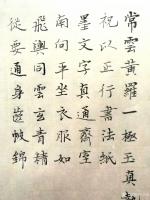 常雲黄羅一極玉真
祝以正行書法紙
墨文字真通齋室
南向平坐衣服如
飛輿同雲玄青精
從要通身著帔錦